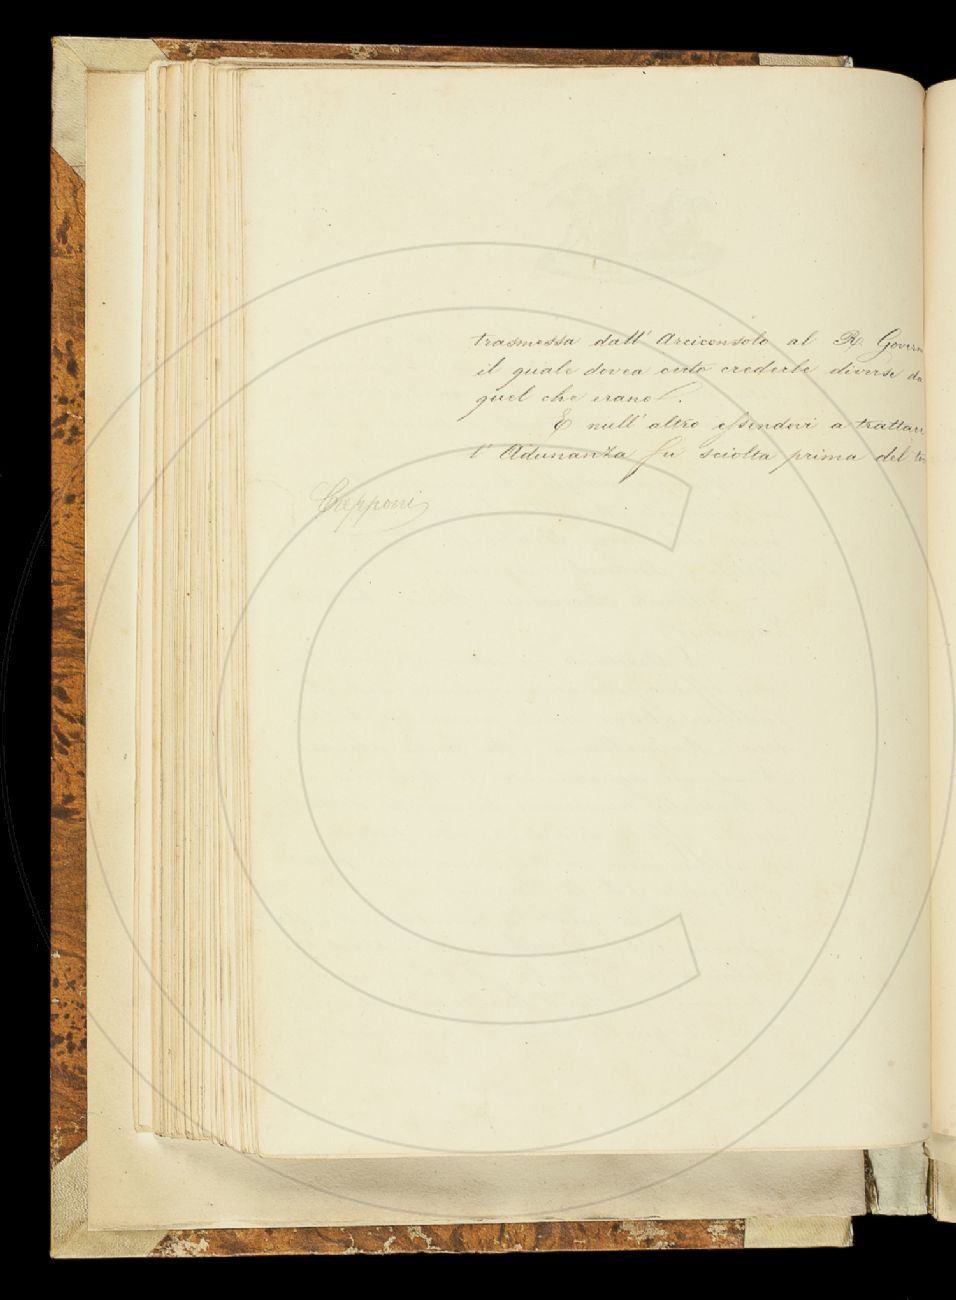 trasmessa dall' Arciconsolo al R. Govern
il quale dovea certo crederle diverse da
quel che erano.
E null' altro essendovi a trattar
l' Adunanza fu sciolta prima del to